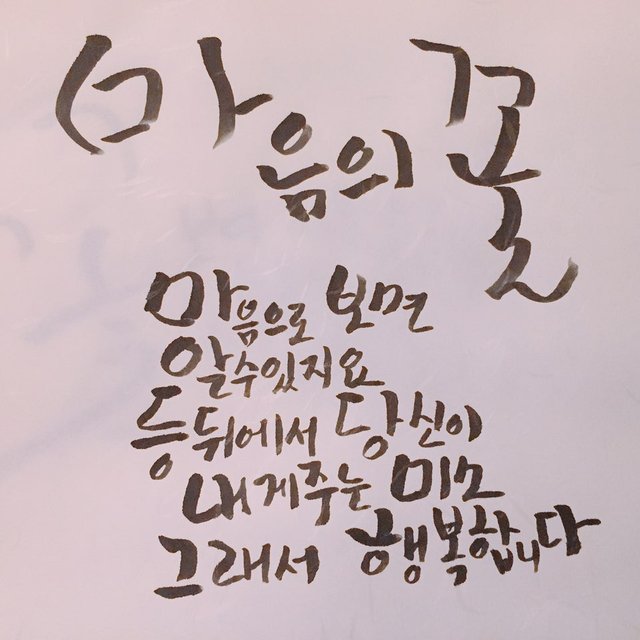 마음의 꽃
마음으로 보면
알수있지요
등뒤에서 당신이
내게주는 미소
그래서 행복합니다